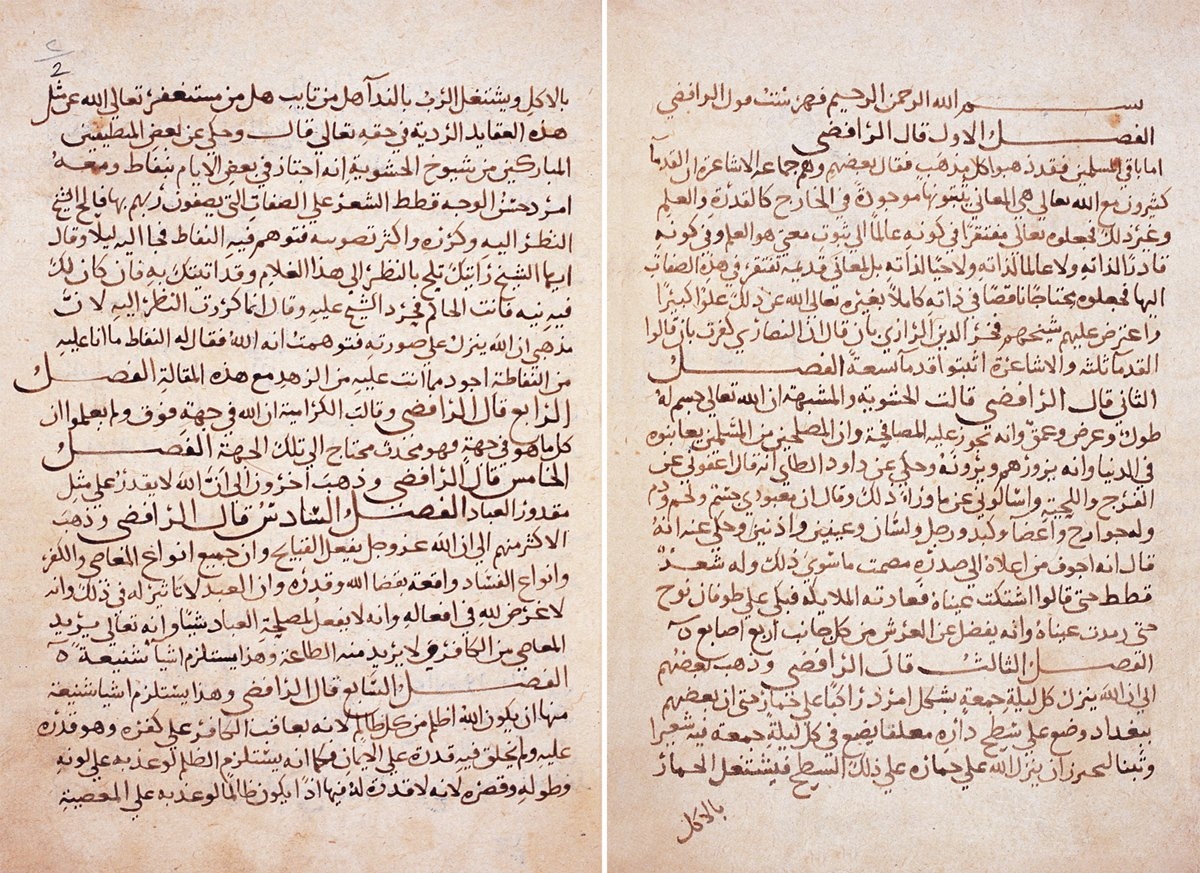 بســـــم الله الرحمن الرحيم فهرست قول الرافضي
الفصـــل الاول قال الرافضي
اما باقي المسلمين فقد ذهبوا كل مذهب فقال بعضهم وهم جماعه الاشاعرة ان القدمآ
كثيرون مع الله تعالى هي المعاني يثبتونها موجودة في الخارج كالقدرة والعلم
وغير ذلك فجعلوه تعالى مفتقرا في كونه عالما الى ثبوت معنى هو العلم وفي كونه
قادرا لذاته ولا عالما لذاته ولا حيا لذاته بل لمعاني قديمة تفتقر في هذه الصفات
اليها فجعلوه محتاجا ناقصا في ذاته كاملا بغيره تعالى الله عن ذلك علوا كبيرا
واعترض عليهم شيخهم فخر الدين الرازي بان قال ان النصارى كفرت بان قالوا
القدما ثلثه والاشاعرة اثبتوا قدمآ تسعة الفصـــل
الثاني قال الرافضي قالت الحشوية والمشبهة ان الله تعالى جسم له
طول وعرض وعمق وانه تجوز عليه المصافحة وان المصلحين من المسلمين يعاينونه
في الدنيا وانه يزورهم ويزورنه وحكي عن داود الطاي انه قال اعفوني عن
الفرج واللحية واسالوني عن ما ورآ ذلك وقال ان معبودي جسم ولحم ودم
وله جوارح واعضا وكبد ورجل ولسان وعينين واذنين وحكي عنه انه
قال انه اجوف من اعلاه الى صدره مصمت ما سوى ذلك وله شعر
قطط حتى قالوا اشتكت عيناه فعادته الملايكه فبكى على طوفان نوح
حتى رمدت عيناه وانه يفضل عن العرش من كل جانب اربع اصابع ه
الفصـــل الثالث قال الرافضي وذهب بعضهم
الى ان الله ينزل كل ليلة جمعة بشكل امرد راكبا على حمار حتى ان بعضهم
ببغداد وضع على سطح داره معلفا يضع في كل ليلة جمعة فيه شعيرا
وتبنا لتجويز ان ينزل الله على حماره على ذلك السطح فيشتغل الحمار
بالاكل
٢
2
بالاكل ويشتغل الرب بالندآ هل من تايب هل من مستغفر تعالى الله عن مثل
هذه العقايد الردية في حقه تعالى قال وحكي عن بعض المنقطعين
المباركين من شيوخ الحشوية انه اجتاز في بعض الايام بنفاط ومعه
امرد حسن الوجه قطط الشعر على الصفات التي يصفون ربهم بها فالح الشيخ
النظر اليه وكرره واكثر تصويبه فتوهم فيه النفاط فجا اليه ليلا وقال
ايها الشيخ رايتك تلح بالنظر الى هذا الغلام وقد اتيتك به فان كان لك
فيه نيه فانت الحاكم فحرد الشيخ عليه وقال انما كررت النظر اليه لان
مذهبي ان الله ينزل على صورته فتوهمت انه الله فقال له النفاط ما انا عليه
من النفاطة اجود مما انت عليه من الزهد مع هذه المقالة الفصـــل
الرابع قال الرافضي وقالت الكرامية ان الله في جهة فوق ولم يعلموا ان
كل ما هو في جهة فهو محدث محتاج الى تلك الجهة الفصـــل
الخامس قال الرافضي وذهب اخرون الى ان الله لا يقدر على مثل
مقدور العباد الفصـــل السادس قال الرافضي وذهب
الاكثر منهم الى ان الله عز وجل يفعل القبايح وان جميع انواع المعاصي والكفر
وانواع الفساد واقعة بقضا الله وقدره وان العبد لا تاثير له في ذلك وانه
لا غرض لله في افعاله وانه لا يفعل لمصلحة العباد شيئا وانه تعالى يريد
المعاصي من الكافر ولا يريد منه الطاعة وهذا يستلزم اشيآ شنيعة ه
الفصـــل السابع قال الرافضي وهذا يستلزم اشيا شنيعة
منها ان يكون الله اظلم من كل ظالم لانه يعاقب الكافر على كفره وهو قدره
عليه ولم يخلق فيه قدرة على الايمان فكما انه يستلزم الظلم لو عذبه على لونه
وطوله وقصره لانه لا قدرة له فيها اذا يكون ظالما لو عذبه على المعصية